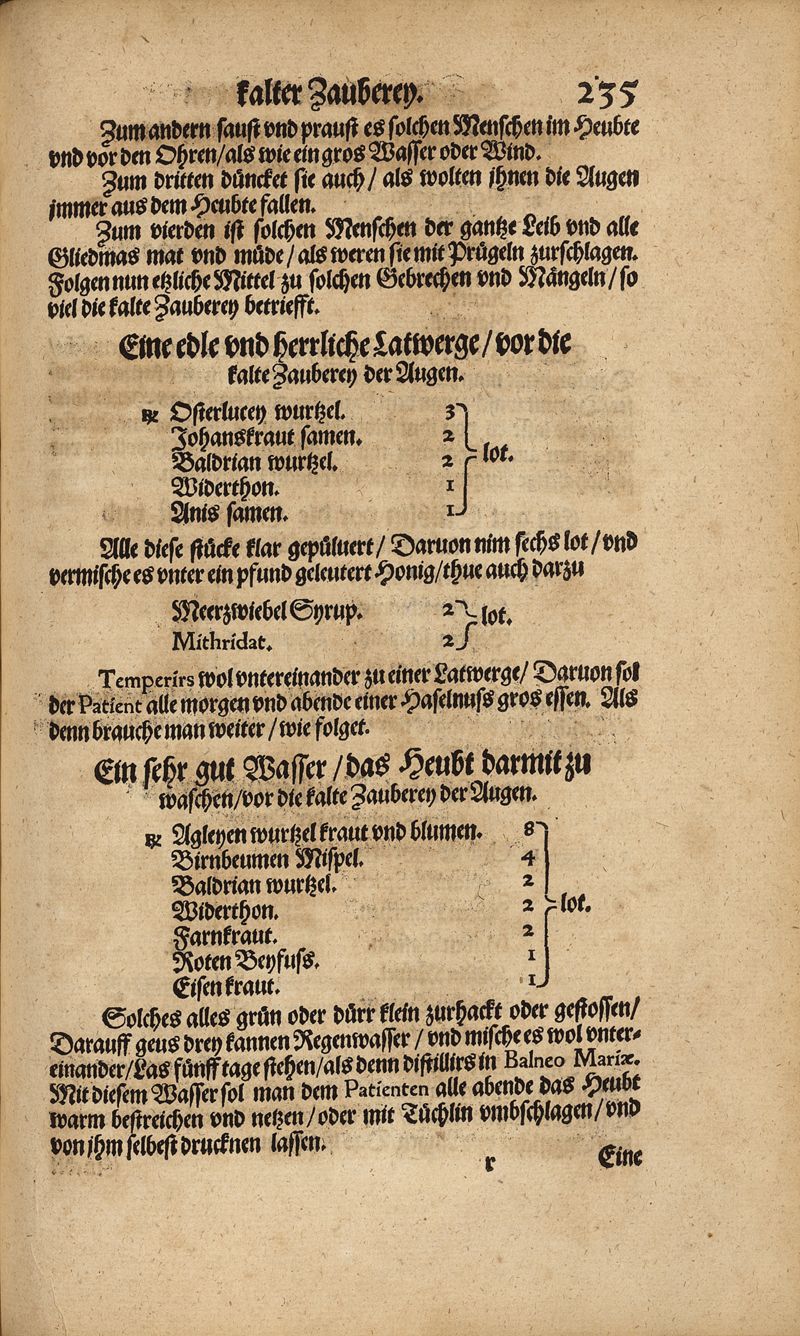 kalter Zauberey. 235
Zum andern saust vnd praust es solchen Menschen im Heubte
vnd vor den Ohren/als wie ein gros Wasser oder Wind.
Zum dritten düncket sie auch/ als wolten jhnen die Augen
jmmer aus dem Heubte fallen.
Zum vierden ist solchen Menschen der gantze Leib vnd alle
Gliedmas mat vnd müde/als weren sie mit Prügeln zurschlagen.
Folgen nun etzliche Mittel zu solchen Gebrechen vnd Mängeln/so
viel die kalte Zauberey betriefft.
Eine edle vnd herrliche Latwerge/vor die
kalte Zauberey der Augen.
℞ Osterlucey wurtzel. 3
Johanskraut samen. 2
Baldrian wurtzel. 2 lot.
Widerthon. 1
Anis samen. 1
Alle diese stücke klar gepüluert/ Daruon nim sechs lot/vnd
vermische es vnter ein pfund geleutert Honig/thue auch darzu
Meerzwiebel Syrup. 2 lot.
Mithridat. 2
Temperirs wol vntereinander zu einer Latwerge/ Daruon sol
der Patient alle morgen vnd abende einer Haselnuss gros essen. Als
denn brauche man weiter/wie folget.
Ein sehr gut Wasser/das Heubt darmit zu
waschen/vor die kalte Zauberey der Augen.
℞ Agleyen wurtzel kraut vnd blumen. 8
Birnbeumen Mispel. 4
Baldrian wurtzel. 2
Widerthon. 2 lot.
Farnkraut. 2
Roten Beyfuss. 1
Eisenkraut. 1
Solches alles grün oder dürr klein zurhackt oder gestossen/
Darauff geus drey kannen Regenwasser/vnd mische es wol vnter-
einander/Las fünff tage stehen/als denn distillirs in Balneo Mariæ.
Mit diesem Wasser sol man dem Patienten alle abende das Heubt
warm bestreichen vnd netzen/oder mit Tüchlin vmbschlagen/vnd
von jhm selbest drucknen lassen.
r Eine